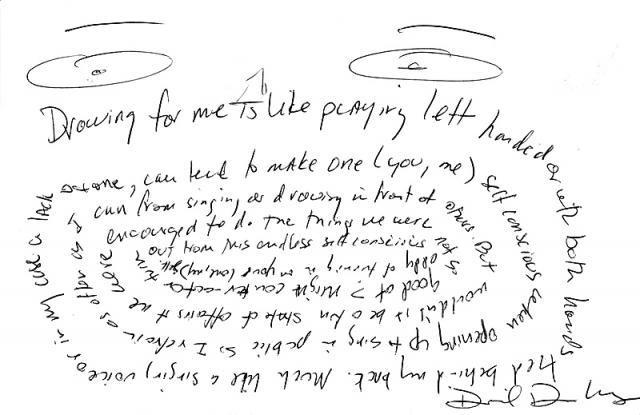 Drawing for me is like playing left handed or with both hands
tied behind my back. Much like a singing voice or in my case a lack
of one, can lead to make one (you, me) self conscious when
opening up to sing in public so I refrain as often as I
can from singing, as drawing in front of others. But
wouldn't it be a fun state of affairs if we were
encouraged to do the things we were not so
good at? Might counter-act a turn
out from this endless self conscious
hobby of tuning in your (our, my) self